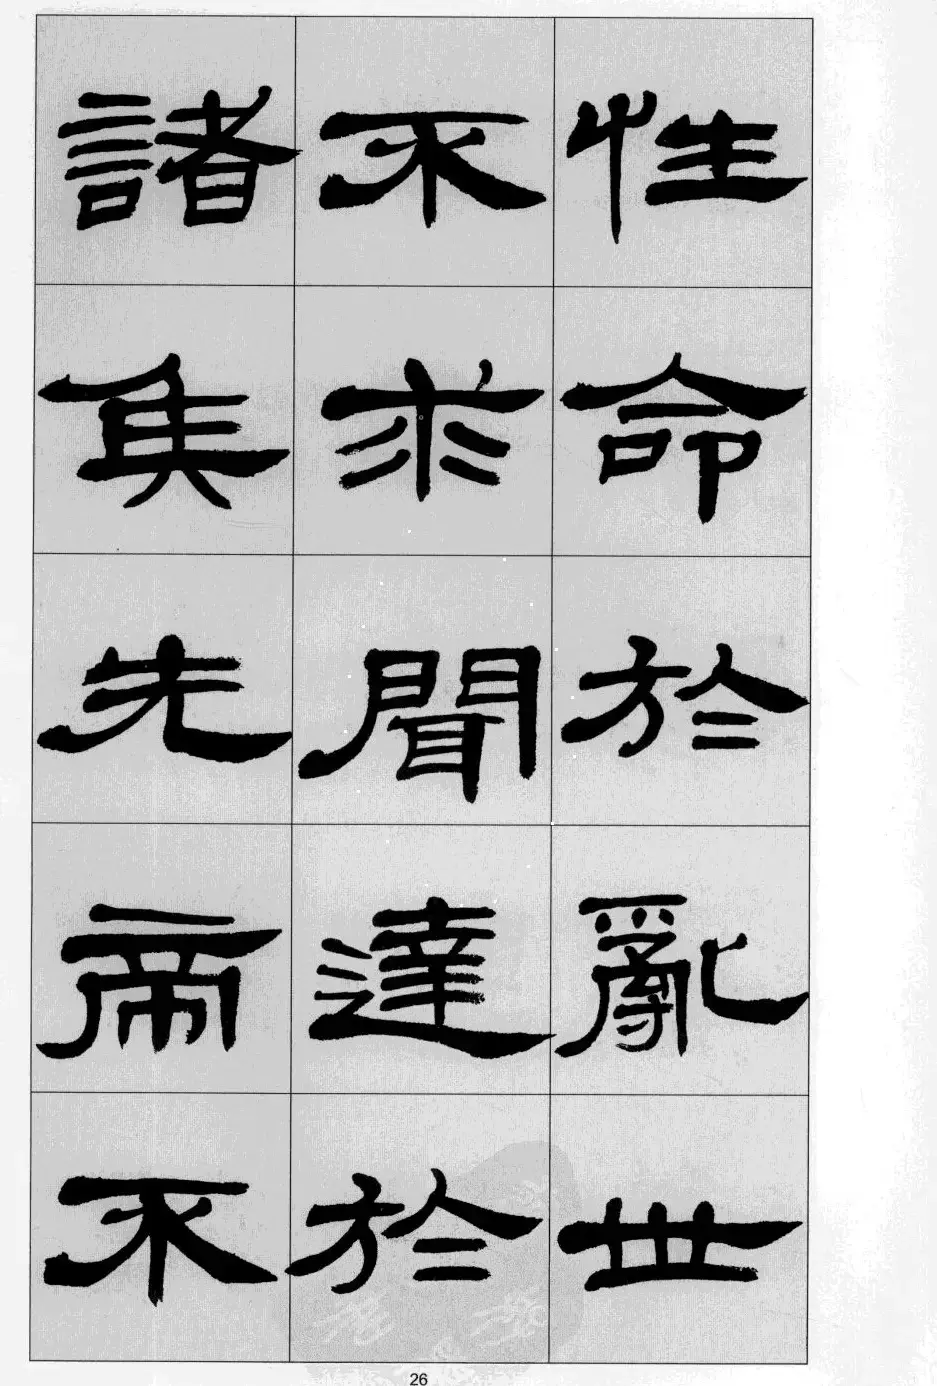 性命於亂世
不求聞達於
諸矦先帝不
26